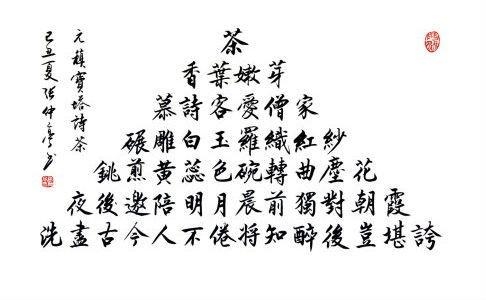 茶
香葉嫩芽
慕詩客愛僧家
碾雕白玉羅織紅紗
銚煎黃蕊色碗轉曲塵花
夜後邀陪明月晨前獨對朝霞
洗盡古今人不倦將知醉後豈堪誇
元稹寶塔詩茶
己丑夏張仲亭書